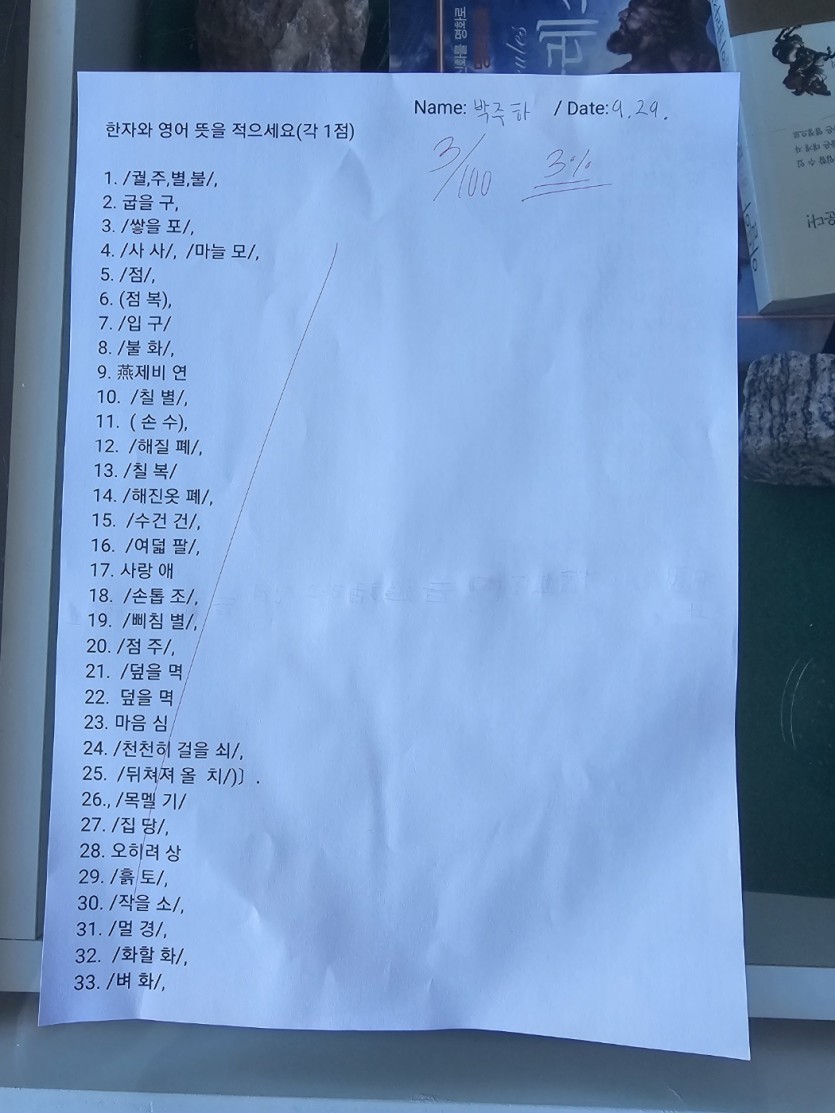 Name: 박주하 / Date: 9.29.
한자와 영어 뜻을 적으세요(각 1점)
3/100 3%
1. /궐,주,별,불/,
2. 굽을 구,
3. /쌓을 포/,
4. /사 사/, /마늘 모/,
5. /점/,
6. (점 복),
7. /입 구/
8. /불 화/,
9. 燕제비 연
10. /칠 별/,
11. ( 손 수),
12. /해질 폐/,
13. /칠 복/
14. /해진옷 폐/,
15. /수건 건/,
16. /여덟 팔/,
17. 사랑 애
18. /손톱 조/,
19. /삐침 별/,
20. /점 주/,
21. /덮을 멱
22. 덮을 멱
23. 마음 심
24. /천천히 걸을 쇠/,
25. /뒤쳐져 올 치/)〕.
26., /목멜 기/
27. /집 당/,
28. 오히려 상
29. /흙 토/,
30. /작을 소/,
31. /멀 경/,
32. /화할 화/,
33. /벼 화/,